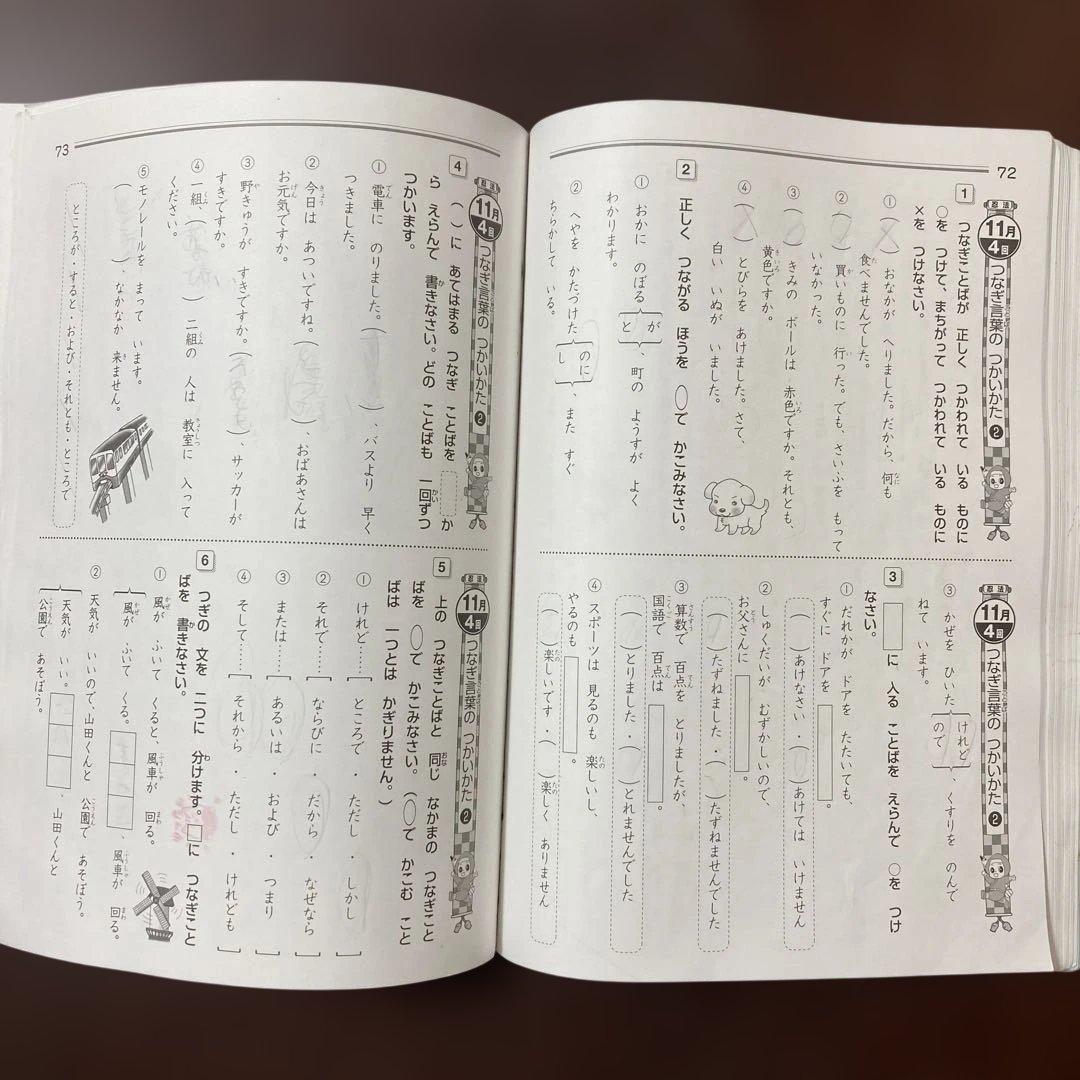 72
忍法
11月
4回
つなぎ言葉の つかいかた 2
1
つなぎことばが 正しく つかわれて いる ものに
○を つけて、まちがって つかわれて いる ものに
×を つけなさい。
① (×) おなかが へりました。だから、何も
食べませんでした。
② ( ) 買いものに 行った。でも、さいふを もって
いなかった。
③ ( ) きみの ボールは 赤色ですか。それとも、
黄色ですか。
④ (×) とびらを あけました。さて、
白い いぬが いました。
2
正しく つながる ほうを ○で かこみなさい。
① おかに のぼる{が と}、町の ようすが よく
わかります。
② へやを かたづけた{のに し}、また すぐ
ちらかして いる。
忍法
11月
4回
つなぎ言葉の つかいかた 2
③ かぜを ひいた{けれど ので}、くすりを のんで
ねて います。
3
□に 入る ことばを えらんで ○を つけ
なさい。
① だれかが ドアを たたいても、
すぐに ドアを □。
( )あけなさい・( )あけては いけません
② しゅくだいが むずかしいので、
お父さんに □。
( )たずねました・( )たずねませんでした
③ 算数で 百点を とりましたが、
国語で 百点は □。
( )とりました・( )とれませんでした
④ スポーツは 見るのも 楽しいし、
やるのも □。
( )楽しいです・( )楽しく ありません
73
忍法
11月
4回
つなぎ言葉の つかいかた 2
4
( )に あてはまる つなぎ ことばを □か
ら えらんで 書きなさい。どの ことばも 一回ずつ
つかいます。
① 電車に のりました。( )、バスより 早く
つきました。
② 今日は あついですね。( )、おばあさんは
お元気ですか。
③ 野きゅうが すきですか。( )、サッカーが
すきですか。
④ 一組、( ) 二組の 人は 教室に 入って
ください。
⑤ モノレールを まって います。
( )、なかなか 来ません。
ところが・すると・および・それとも・ところで
忍法
11月
4回
つなぎ言葉の つかいかた 2
5
上の つなぎことばと 同じ なかまの つなぎこと
ばを ○で かこみなさい。(○で かこむ こと
ばは 一つとは かぎりません。)
① けれど……[ところで ・ ただし ・ しかし]
② それで……[ならびに ・ だから ・ なぜなら]
③ または……[あるいは ・ および ・ つまり]
④ そして……[それから ・ ただし ・ けれども]
6
つぎの 文を 二つに 分けます。□に つなぎこと
ばを 書きなさい。
① 風が ふいて くると、風車が 回る。
風が ふいて くる。□□□、風車が 回る。
② 天気が いいので、山田くんと 公園で あそぼう。
天気が いい。□□□、山田くんと
公園で あそぼう。